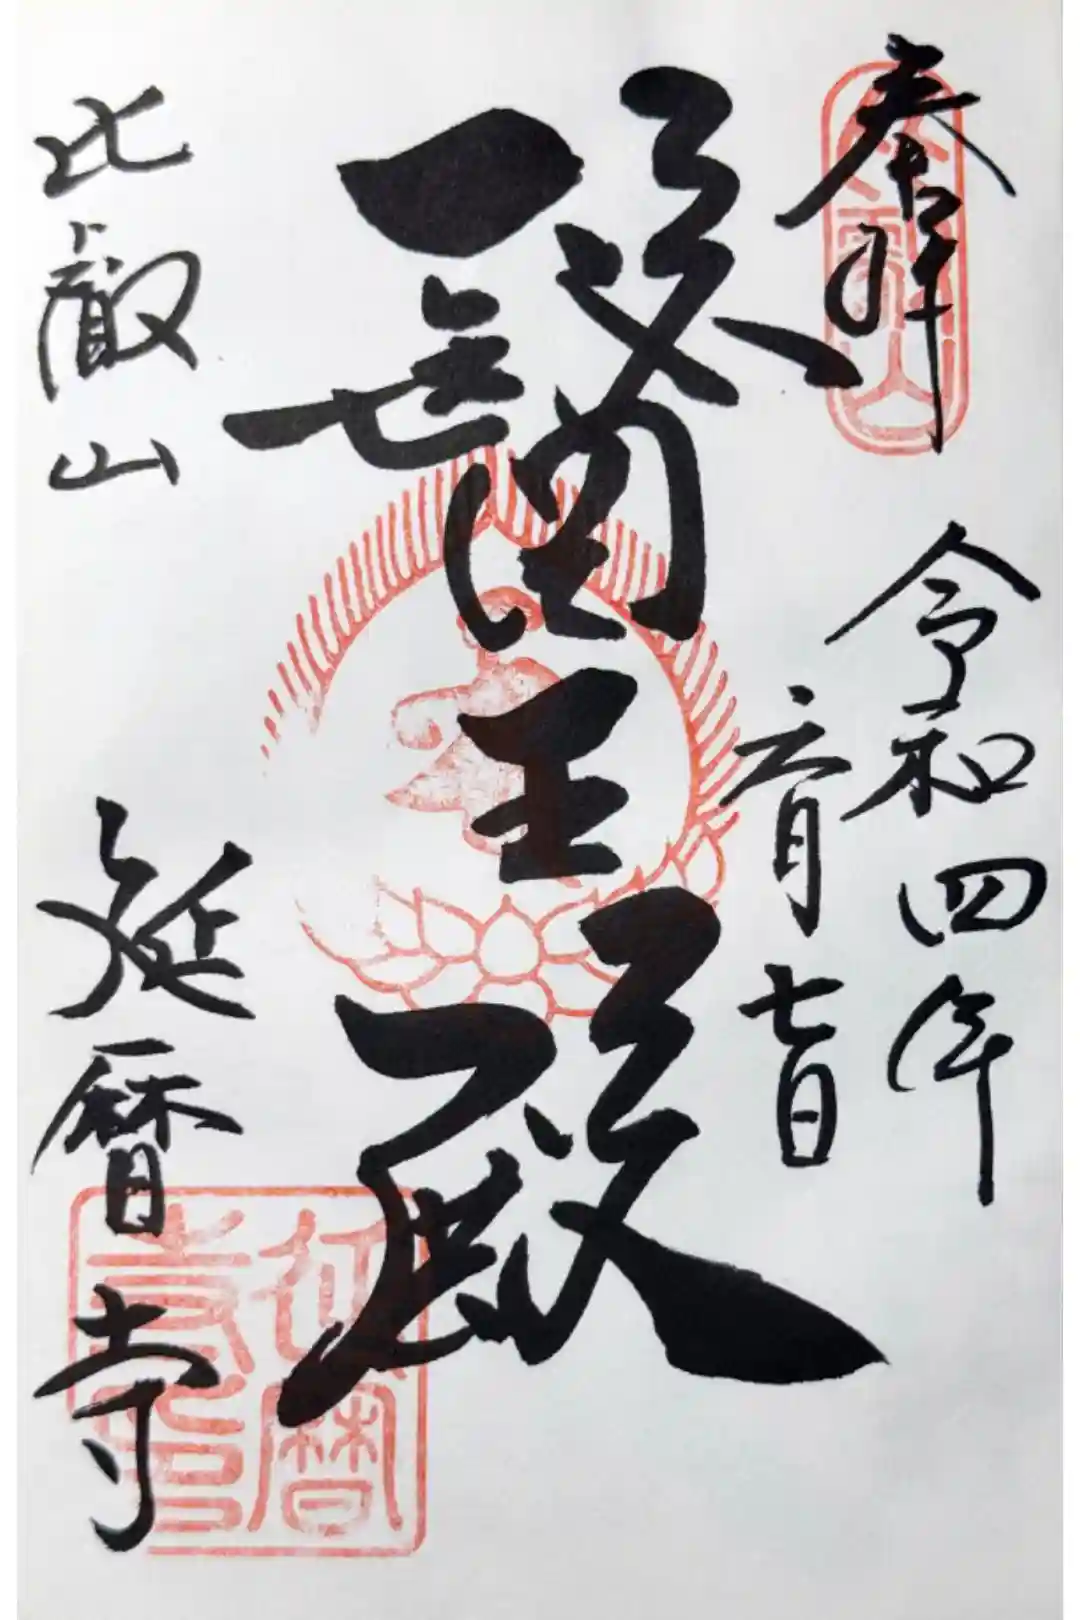 奉拝
比叡山
令和四年
六月七日
醫王殿
比叡山
延暦寺
延暦寺印